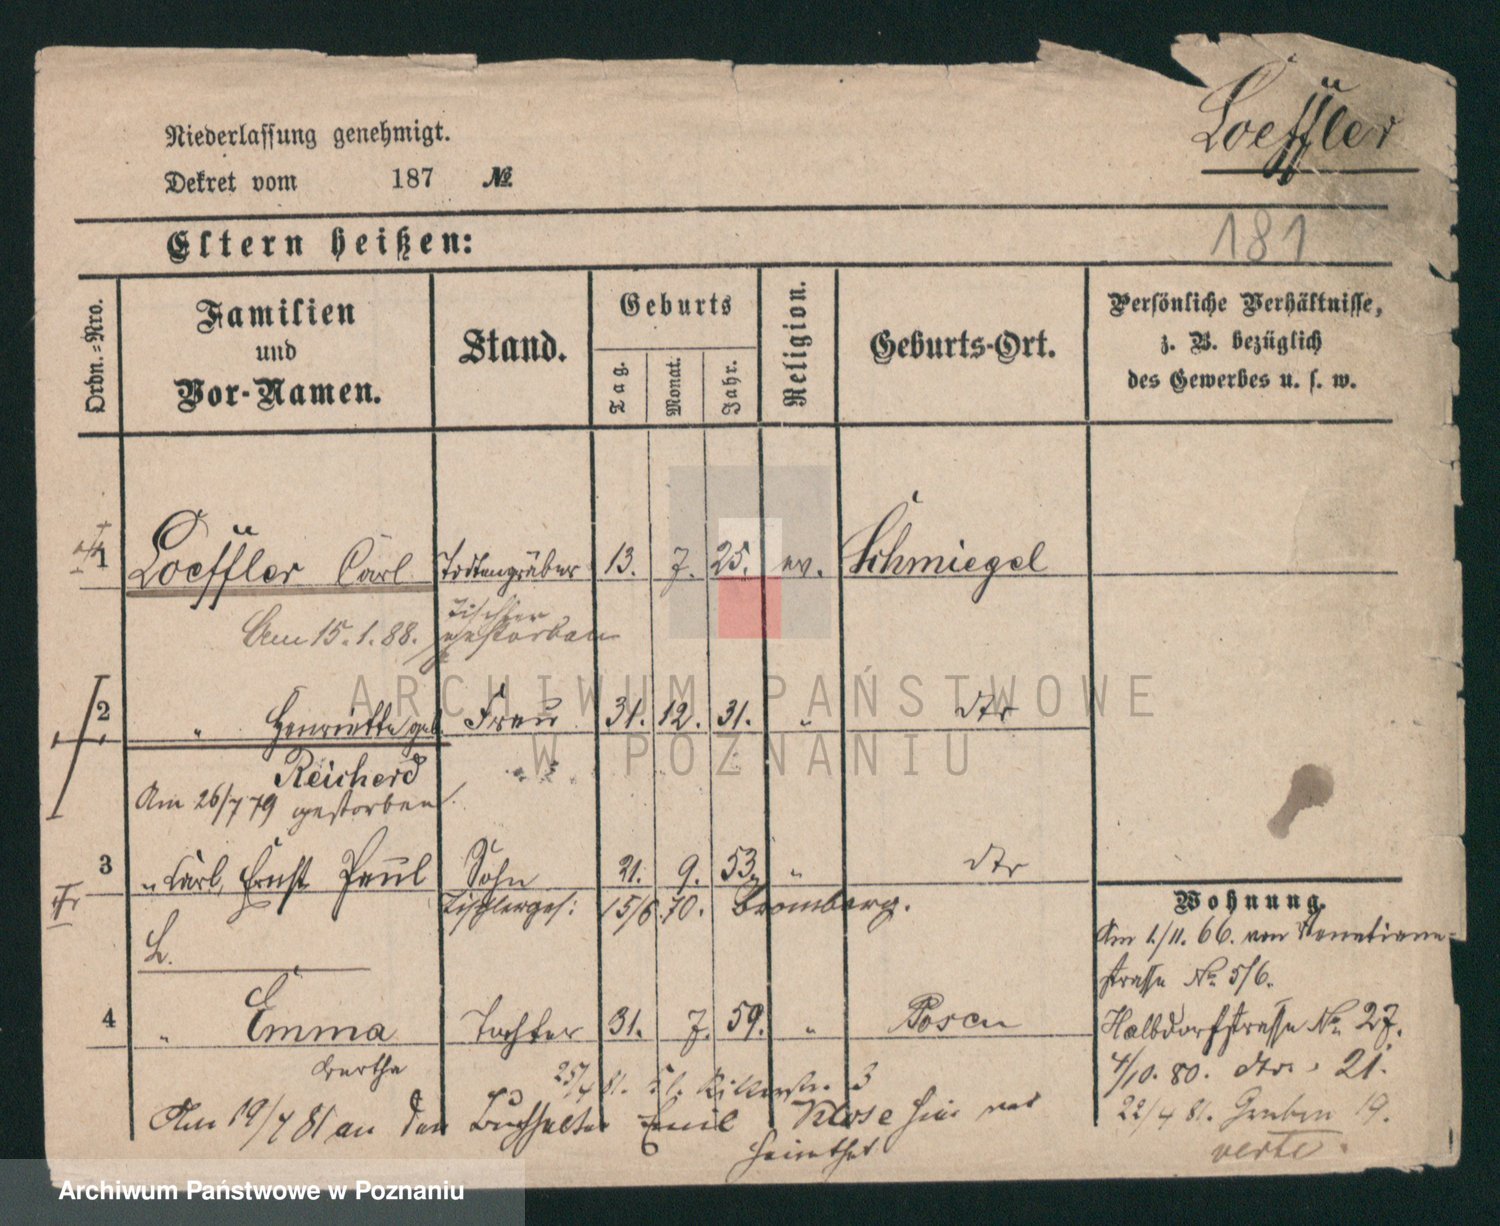 Loeffler
Niederlassung genehmigt.
Dekret vom 187 №
181
Eltern heißen:
Ordn.-Nro.
Familien und Vor-Namen.
Stand.
Geburts
Tag.
Monat.
Jahr.
Religion.
Geburts-Ort.
Persönliche Verhältnisse,
z. B. bezüglich
des Gewerbes u. s. w.
1 Loeffler Carl Todtengräber 13. 7. 25. ev. Schmiegel
Tischler
Am 15.1.88. gestorben
2 " Henriette geb. Frau 31. 12. 31. " dto
Reicherd
Am 26/7 79 gestorben.
3 " Carl, Ernst Paul Sohn 21. 9. 53. " dto
Tischlerges: 15/6 70. Bromberg.
L.
4 " Emma Tochter 31. 7. 59. " Posen
Bertha
25/4 81. 3
Am 19/4 81 an den Buchhalter Emil Klose hier ver
heirathet
Wohnung.
Am 1/11. 66. von Venetianer-
strasse No. 5/6.
Halbdorfstrasse No. 27.
4/10. 80. dto. 21.
22/4 81. Graben 19.
verte.
ARCHIWUM PAŃSTWOWE
W POZNANIU
Archiwum Państwowe w Poznaniu